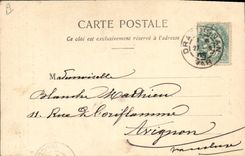 CARTE POSTALE
Ce côté est exclusivement réservé à l'adresse
Mademoiselle
Blanche Mathieu
11 Rue de l'oriflamme
Avignon
Vaucluse